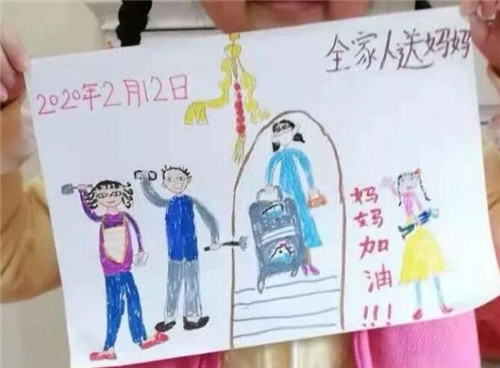 2020年2月12日
全家人送妈妈
妈妈加油!!!